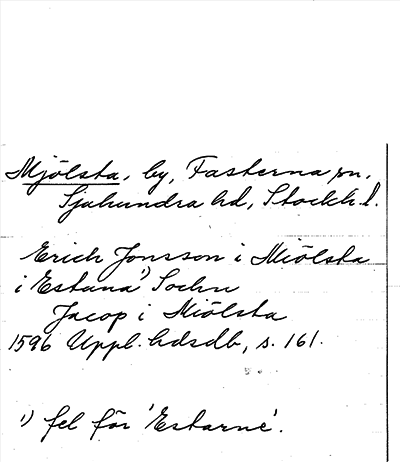 Mjölsta, by, Fasterna sn,
Sjuhundra hd, Stockh. l.
Erich Jonsson i Miölsta
i Estuna¹⁾ Sochn
Jacop i Miölsta
1596 Uppl. hdsdb, s. 161.
¹⁾ fel för 'Estarne'.